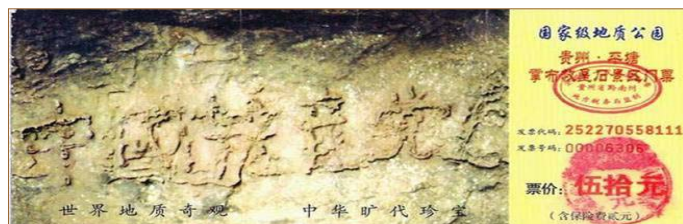 中國共産党
世界地质奇观　中华旷代珍宝
国家级地质公园
贵州·平塘
掌布
景区门票
贵州省黔南州
发票代码：252270558111
发票号码：00006306
票价：伍拾元
（含保险费贰元）